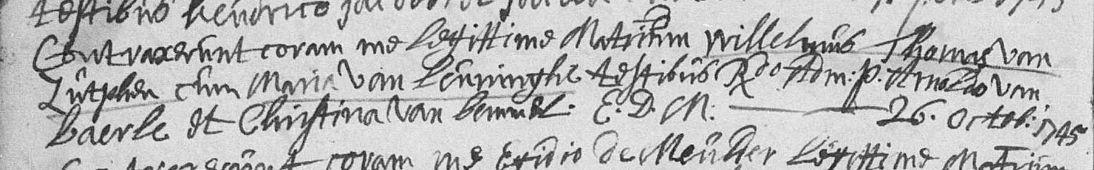 testibus Henrico
Contraxerunt coram me legittime Matrim̄m willelmus Thomas van
Zutphen cum Maria van Leuninghe testibus Rdo Adm: p. Arnoldo van
baerle et Christina van bemmel. E. D. M. 26. Octob: 1745
coram me Egidio de Meulder legittime Matrim̄m